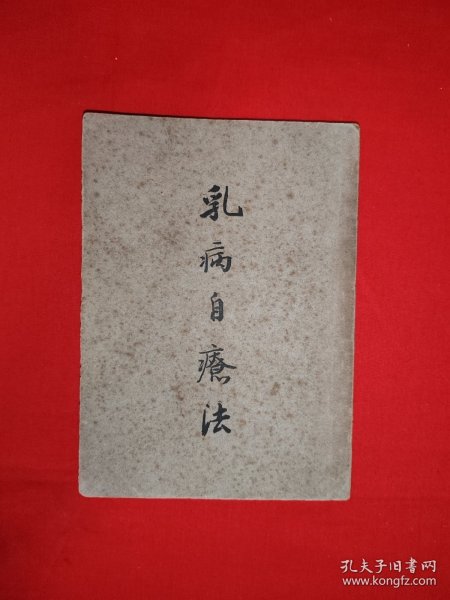 乳病自療法
孔夫子旧书网
www.kongfz.com